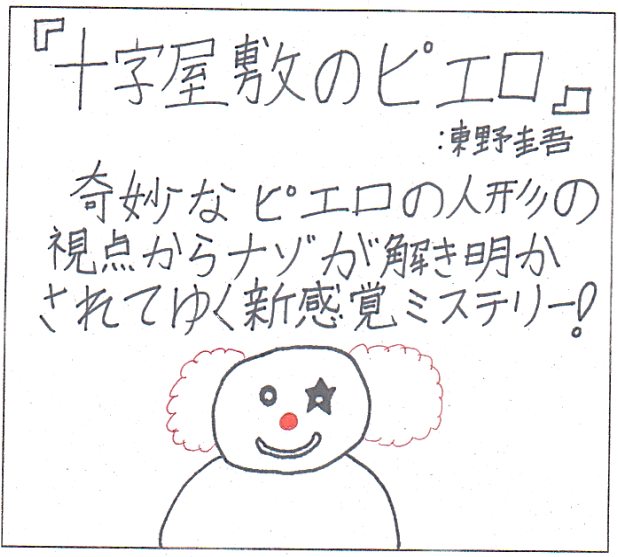 『十字屋敷のピエロ』
:東野圭吾
奇妙なピエロの人形の
視点からナゾが解き明か
されてゆく新感覚ミステリー!